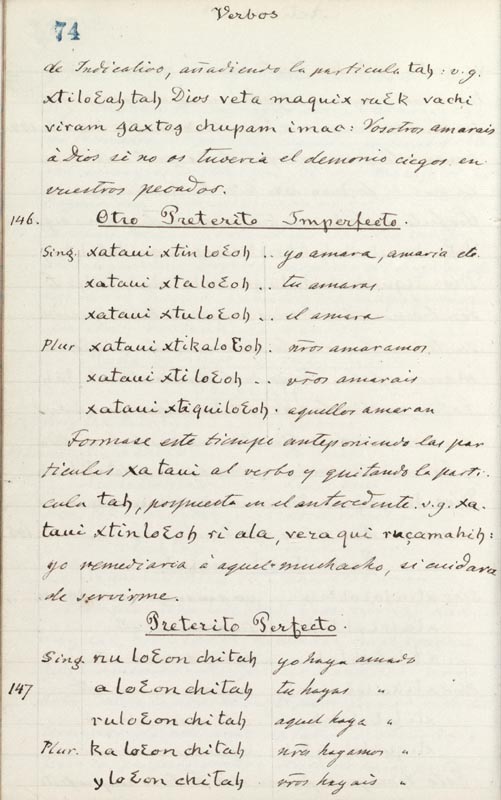 Verbos
74
de Indicativo, añadiendo la particula tah: v.g.
xtiloƐah tah Dios veta maquix ruƐk vachi
viram gaxtog chupam imac: Vosotros amarais
á Dios si no os tuveria el demonio ciegos en
vuestros pecados.
146. Otro Preterito Imperfecto.
Sing. xatavi xtin loƐoh .. yo amara, amaria etc.
xatavi xtaloƐoh .. tu amaras
xatavi xtuloƐoh .. el amara
Plur. xatavi xtikaloƐoh . nr̃os amaramos.
xatavi xtiloƐoh .. vr̃os amarais
xatavi xtiquiloƐoh . aquellos amaran
Formase este tiempo anteponiendo las par
ticulas xatavi al verbo y quitando la parti-
cula tah, pospuesta en el antecedente. v.g. xa-
tavi xtinloƐoh ri ala, vera qui ruçamahih:
yo remediaria á aquel muchacho, si cuidara
de servirme.
Preterito Perfecto.
Sing. nu loƐon chi tah yo haya amado
147 a loƐon chi tah tu hayas "
ruloƐon chi tah aquel haya "
Plur. ka loƐon chi tah nr̃os hagamos "
y loƐon chi tah vr̃os hayais "